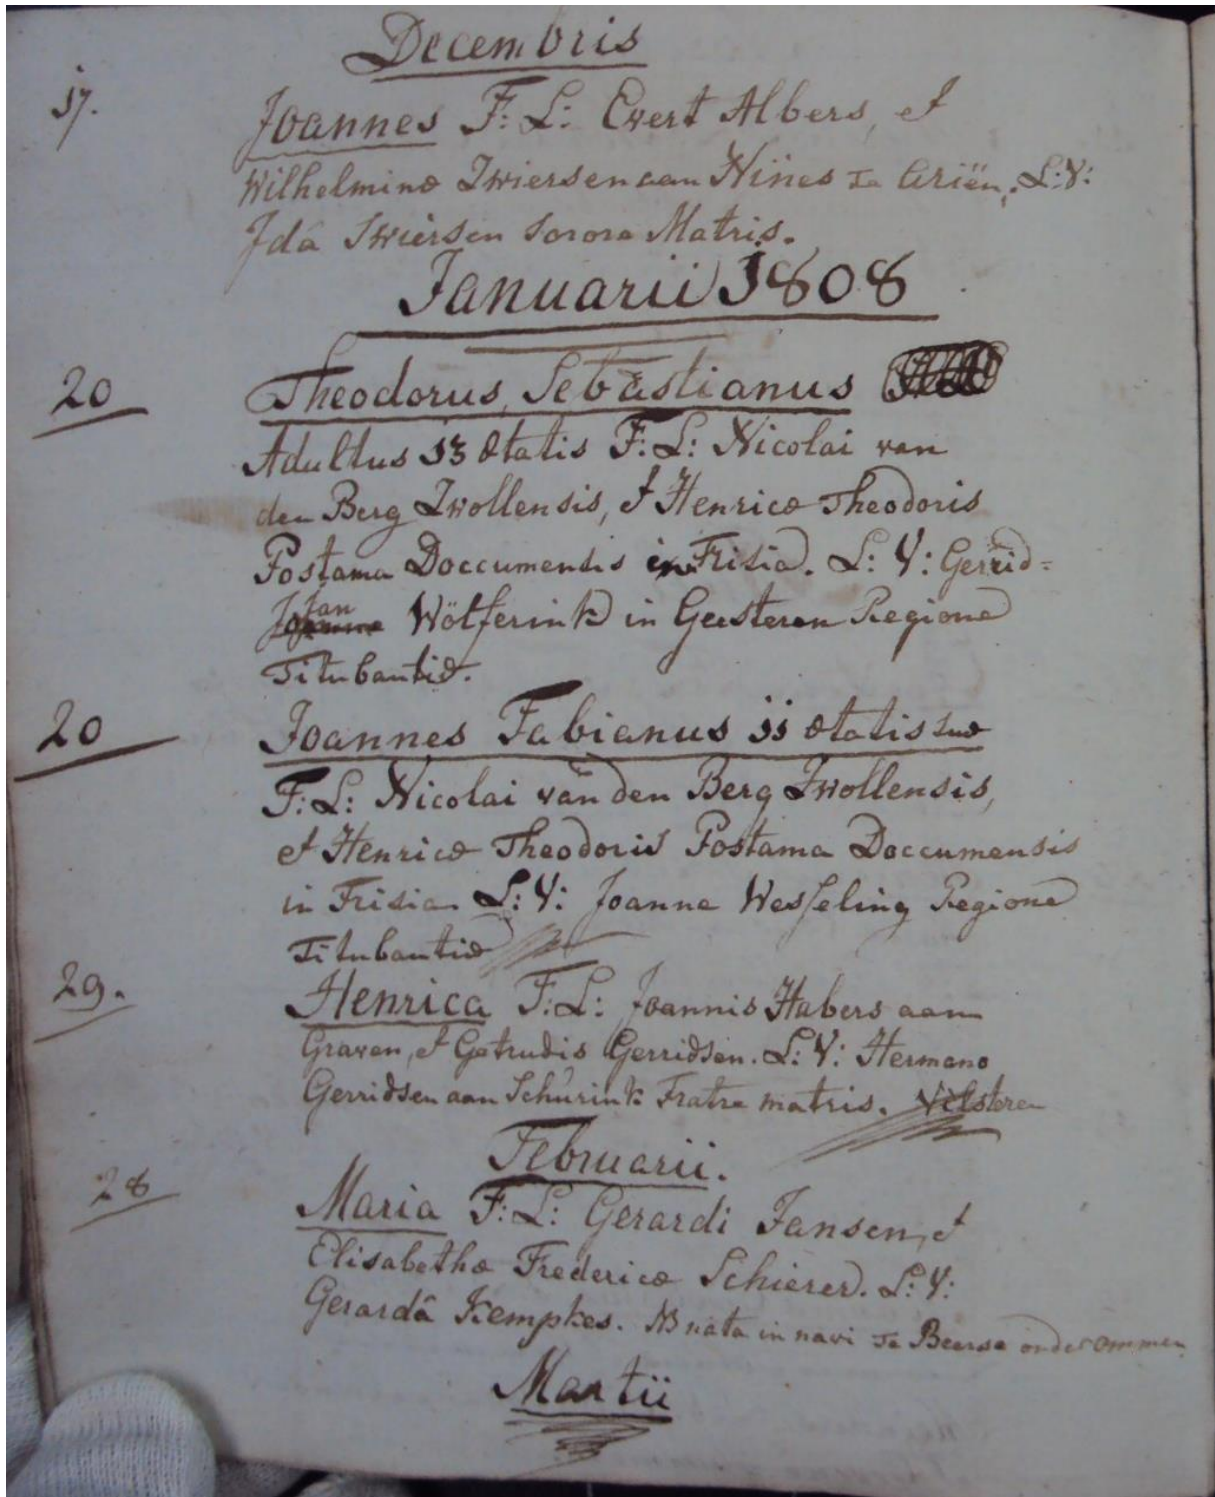 Decembris
17. Joannes F: L: Evert Albers, et
Wilhelminæ Zwiersen aan Nïnes te Ariën, L: V:
Jdâ Swiersen Sorore Matris.
Januarii 1808
20 Theodorus Sebastianus
Adultus 13 ætatis F: L: Nicolai van
den Berg Zwollensis, et Henricæ Theodoris
Postama Doccumensis in Frisia. L: V: Gerrid=
Jan Wölferink in Geesteren Regione
Titubantiæ.
20 Joannes Fabianus 11 ætatis suæ
F: L: Nicolai van den Berg Zwollensis,
et Henricæ Theodoris Postama Doccumensis
in Frisia. L: V: Joanne Wesseling Regione
Titubantiæ
29. Henrica F: L: Joannis Habers aan
Graven, et Getrudis Gerridsen. L: V: Hermano
Gerridsen aan Schurink Fratre matris. Vilsteren
Februarii.
28 Maria F: L: Gerardi Jansen, et
Elisabethæ Fredericæ Schierer. L: V:
Gerardâ Kempkes. NB nata in navi te Beerse onder Ommen
Martii